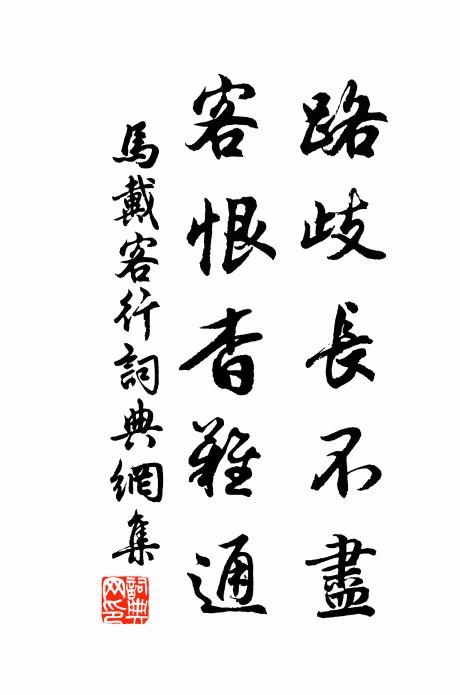 路歧長不盡
客恨杳難通
馬戴客行詞典網集
詞典網印